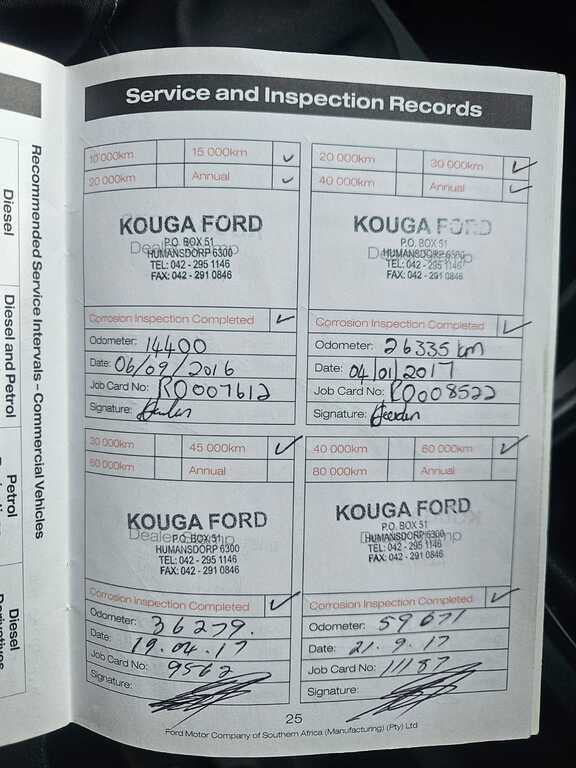 Service and Inspection Records
10 000km 15 000km ✓
20 000km Annual ✓
KOUGA FORD
Dealer Stamp
P.O. BOX 51
HUMANSDORP 6300
TEL: 042 - 295 1146
FAX: 042 - 291 0846
Corrosion Inspection Completed ✓
Odometer: 14400
Date: 06/09/2016
Job Card No: RO007612
Signature:
20 000km 30 000km ✓
40 000km Annual ✓
KOUGA FORD
Dealer Stamp
P.O. BOX 51
HUMANSDORP 6300
TEL: 042 - 295 1146
FAX: 042 - 291 0846
Corrosion Inspection Completed ✓
Odometer: 26335 km
Date: 04/01/2017
Job Card No: RO008522
Signature:
30 000km 45 000km ✓
60 000km Annual
KOUGA FORD
Dealer Stamp
P.O. BOX 51
HUMANSDORP 6300
TEL: 042 - 295 1146
FAX: 042 - 291 0846
Corrosion Inspection Completed ✓
Odometer: 36279.
Date: 19.04.17
Job Card No: 9562
Signature:
40 000km 60 000km ✓
80 000km Annual
KOUGA FORD
Dealer Stamp
P.O. BOX 51
HUMANSDORP 6300
TEL: 042 - 295 1146
FAX: 042 - 291 0846
Corrosion Inspection Completed ✓
Odometer: 59671
Date: 21.9.17
Job Card No: 11187
Signature:
25
Ford Motor Company of Southern Africa (Manufacturing) (Pty) Ltd
Recommended Service Intervals - Commercial Vehicles
Diesel
Diesel and Petrol
Petrol
Diesel